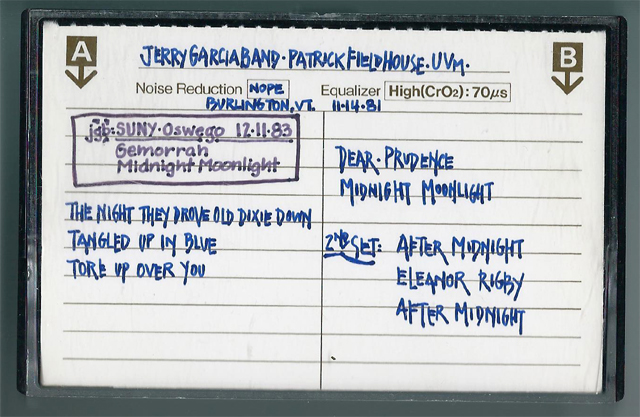 A
B
JERRY GARCIA BAND · PATRICK FIELDHOUSE · UVM.
Noise Reduction NOPE Equalizer High(CrO2): 70μs
BURLINGTON, VT. 11·14·81
jgb: SUNY·Oswego 12·11·83
Gemorrah
Midnight Moonlight
THE NIGHT THEY DROVE OLD DIXIE DOWN
TANGLED UP IN BLUE
TORE UP OVER YOU
DEAR·PRUDENCE
MIDNIGHT MOONLIGHT
2ND SET: AFTER MIDNIGHT
ELEANOR RIGBY
AFTER MIDNIGHT